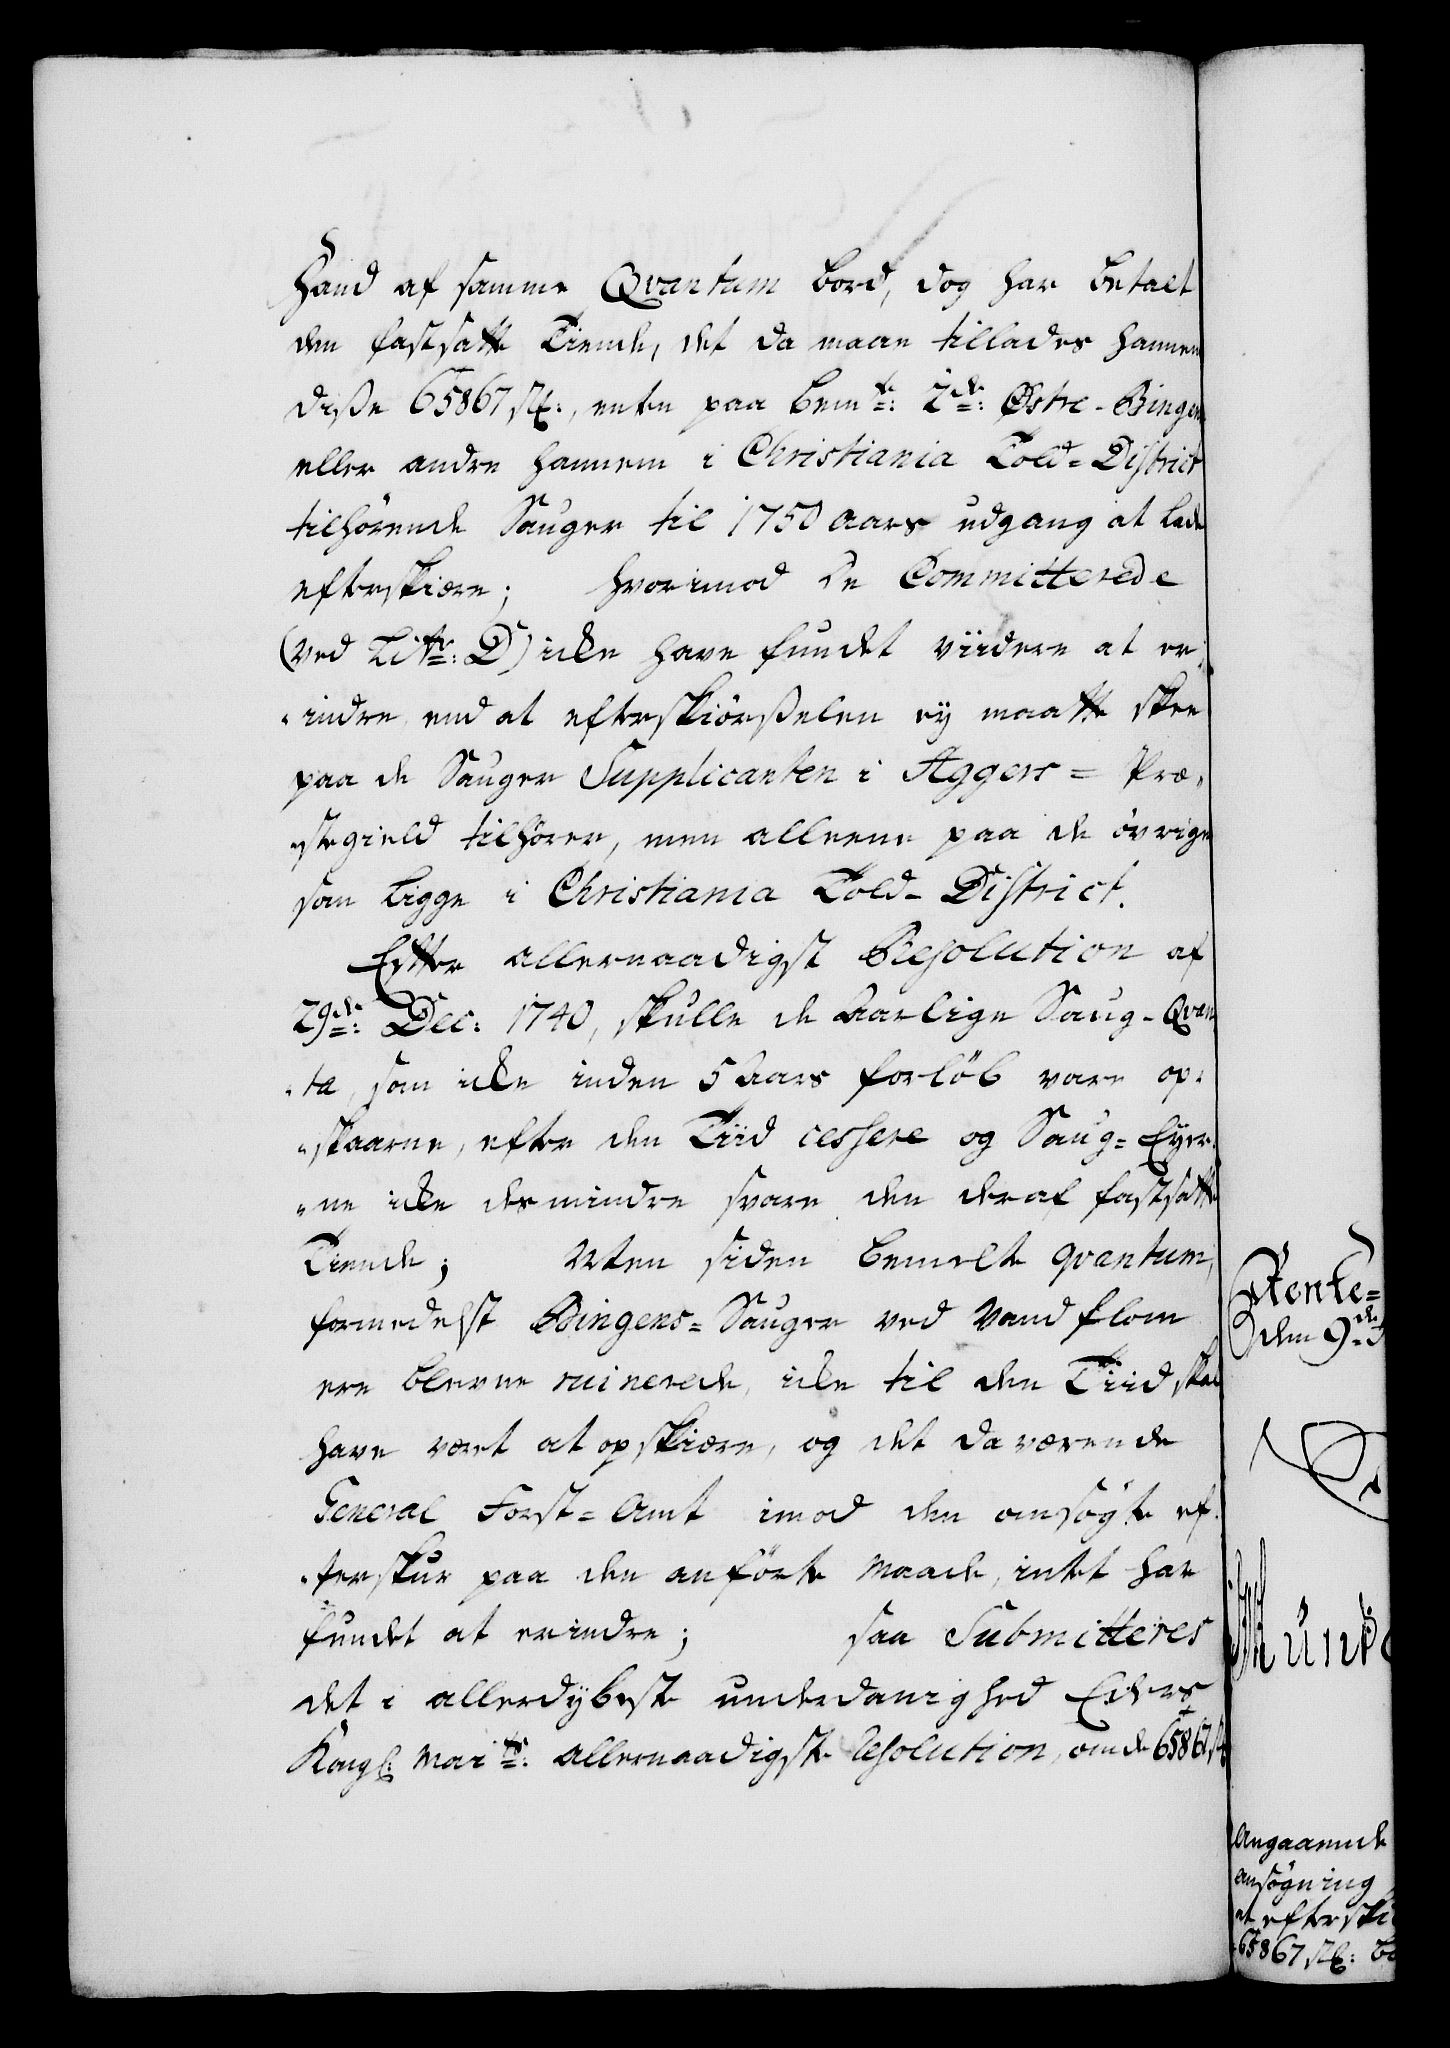 Hand af samme Qvantum bord, dog har betalt
den fastsatte Tiende, det da maae tillades hannem
diße 65867 st:, enten paa bemte: 2de: Østre-Bingen
eller andre hannem i Christiania Told=District
tilhörende Sauger til 1750 Aars udgang at lade
efterskiære; hvorimod De Committerede
(ved Litr: D) icke have fundet viidere at er,
"indre end at efterskiörßelen ey maatte skee
paa de Sauger Supplicanten i Aggers= Præ,
"stegield tilhörer, men alleene paa de övrige
som ligge i Christiania Told-District.
Efter allernaadigst Resolution af
29de: Dec: 1740, skulle de Aarlige Saug-Qvan
"ta, som icke inden 5 Aars forlöb vare op,
"skaarne, efter den Tiid cessere og Saug=Eyer,
"ne icke desmindre svare den deraf fastsatte
Tiende; Men siden bemelte qvantum,
formedelst Bingens=Sauger ved Vandflom
ere blevne ruinerede, icke til den Tiid skal
have været at opskiære, og det da værende
General Forst=Amt imod den ansögte ef,
"terskur paa den anförte Maade, intet har
fundet at erindre; saa Submitteres
det i allerdybeste underdanighed Eders
Kongl: Maits: allernaadigste Resolution, om de 65867 st:
Rente=
den 9de
Angaaende
ansögning
at efterski
65867 st: bo